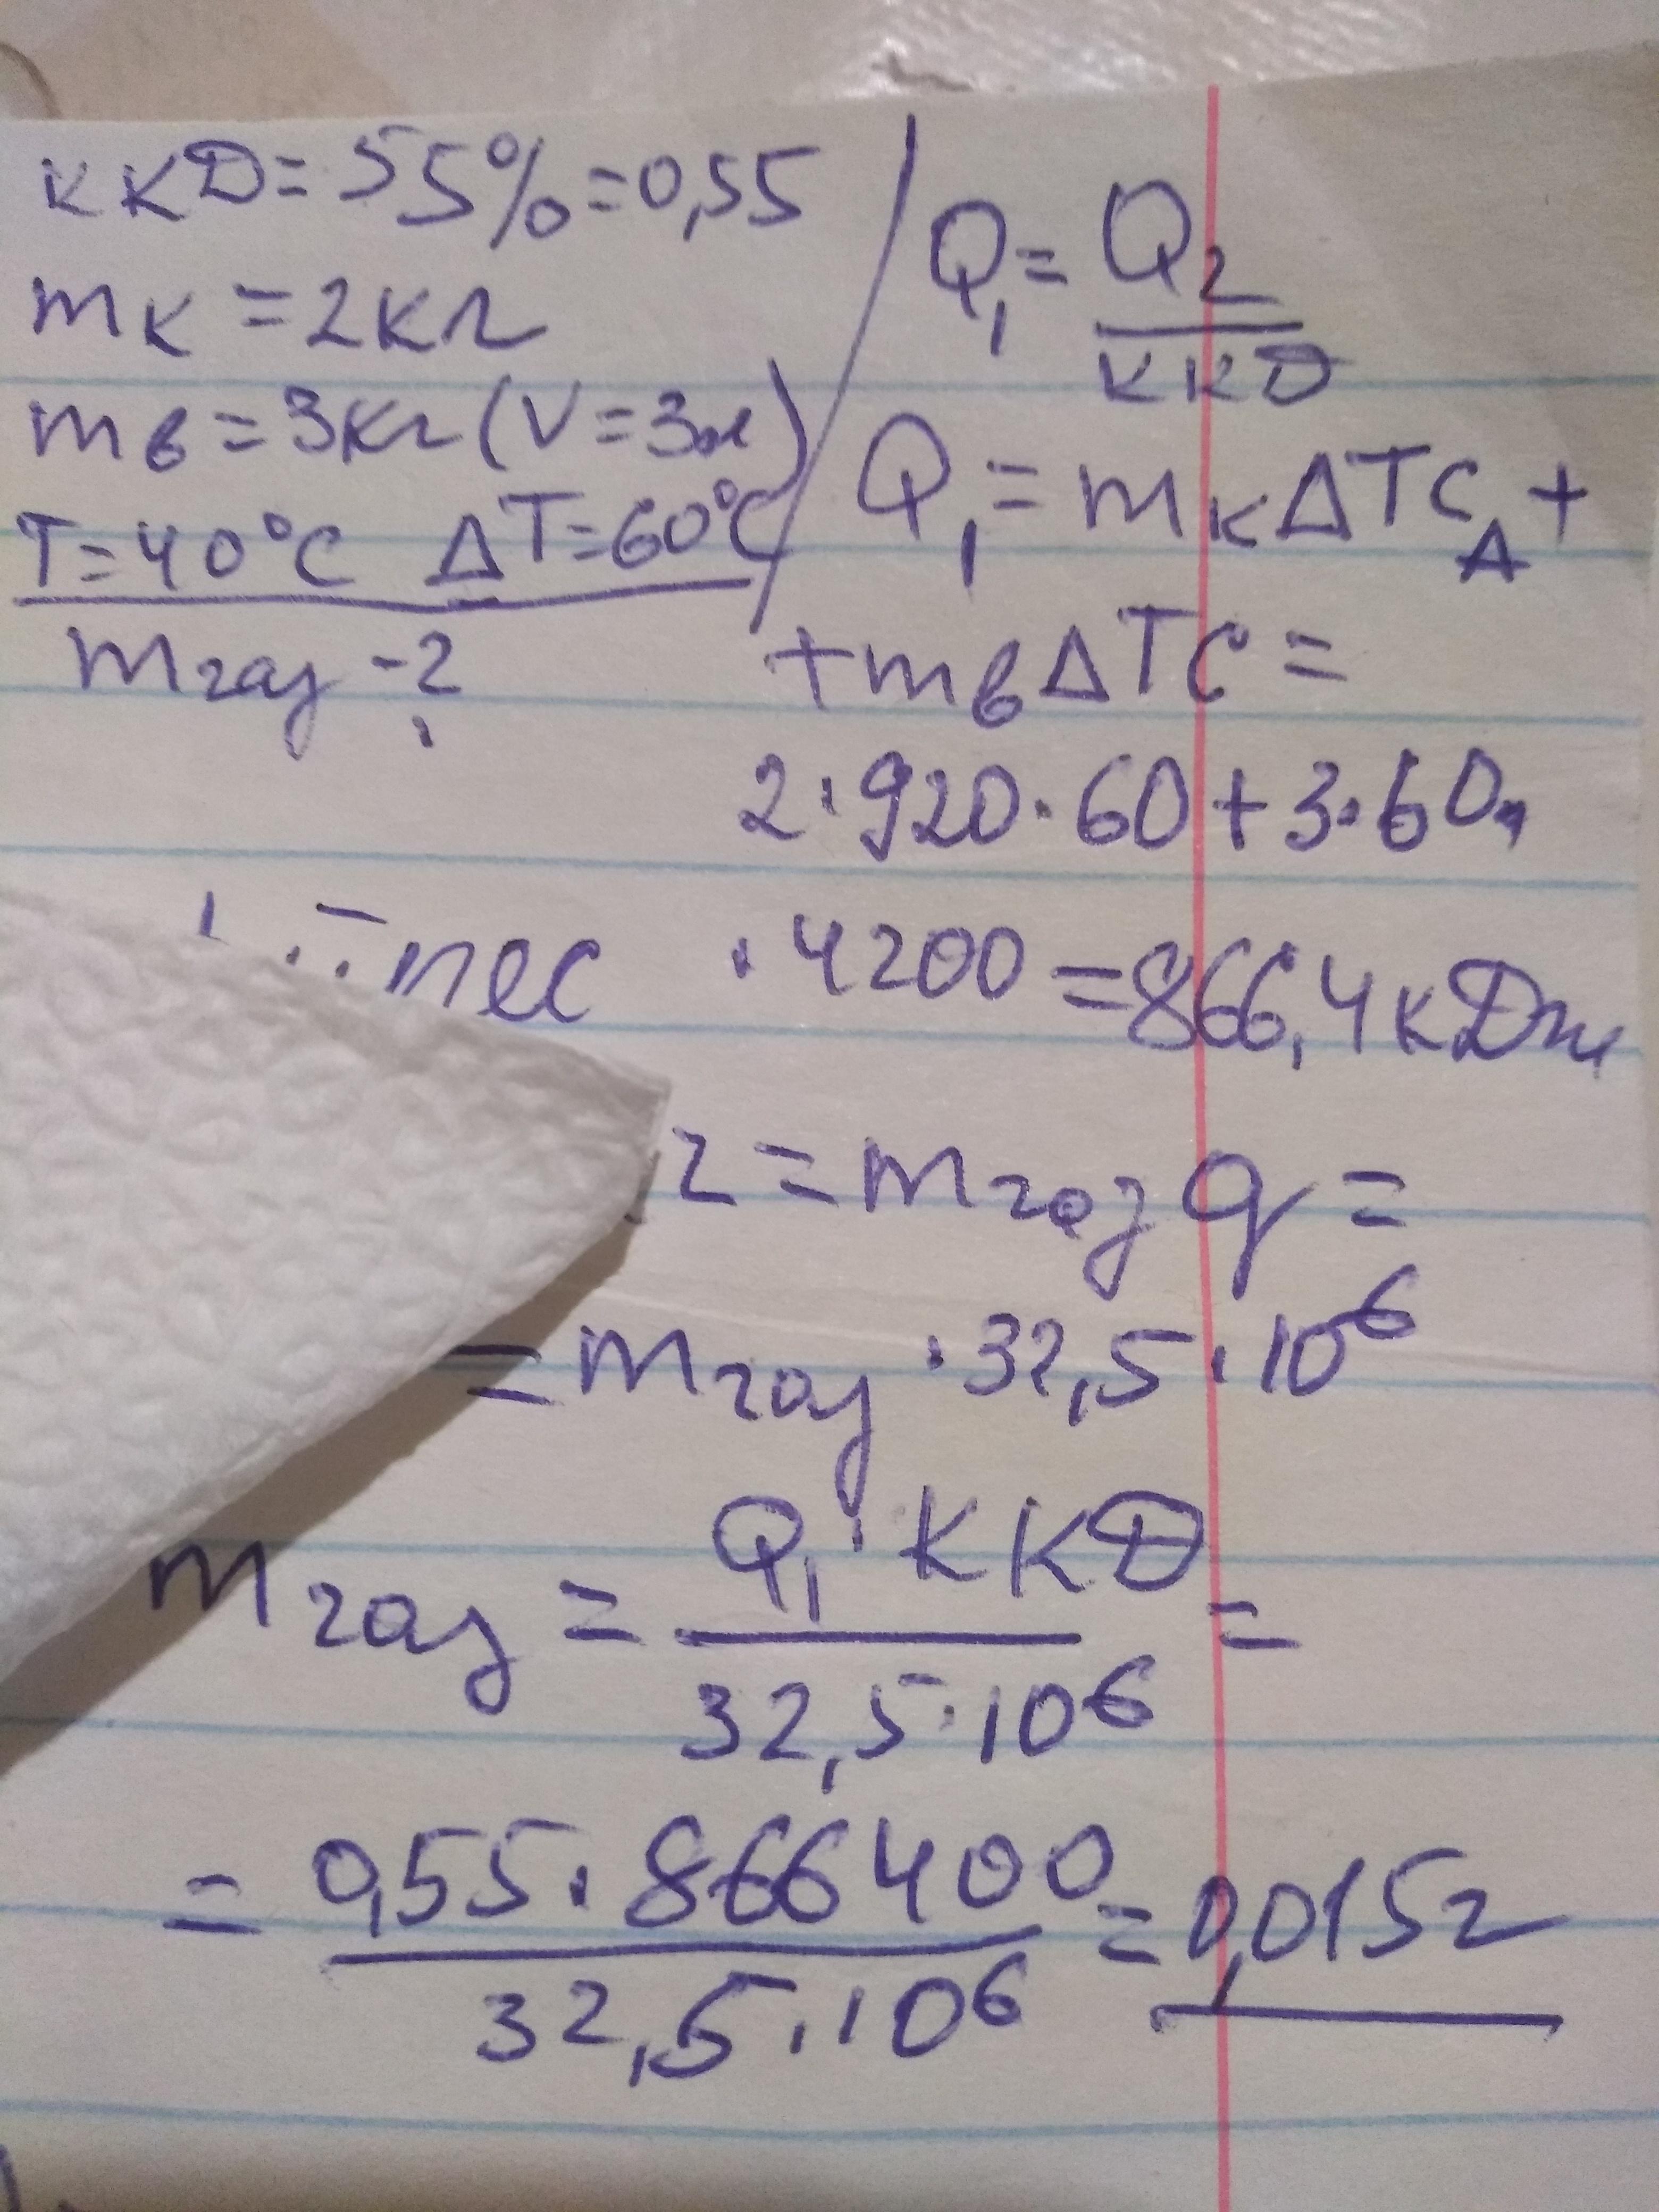 ККД = 55% = 0,55
mк = 2кг
mв = 3кг (V = 3л)
T = 40°C ΔT = 60°C
mгаз - ?
Q₁ = Q₂ / ККД
Q₁ = mкΔTCА +
+ mвΔTC =
2 · 920 · 60 + 3 · 60 ·
· 4200 = 866,4 кДж
2 = mгаз q =
= mгаз · 32,5 · 10⁶
mгаз = Q₁ · ККД / 32,5 · 10⁶ =
= 0,55 · 866400 / 32,5 · 10⁶ = 0,015г